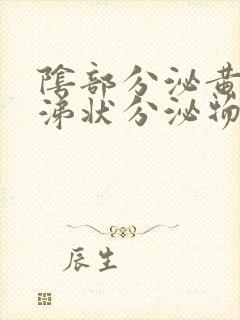 陰部分泌黄
涕状分泌物
辰生